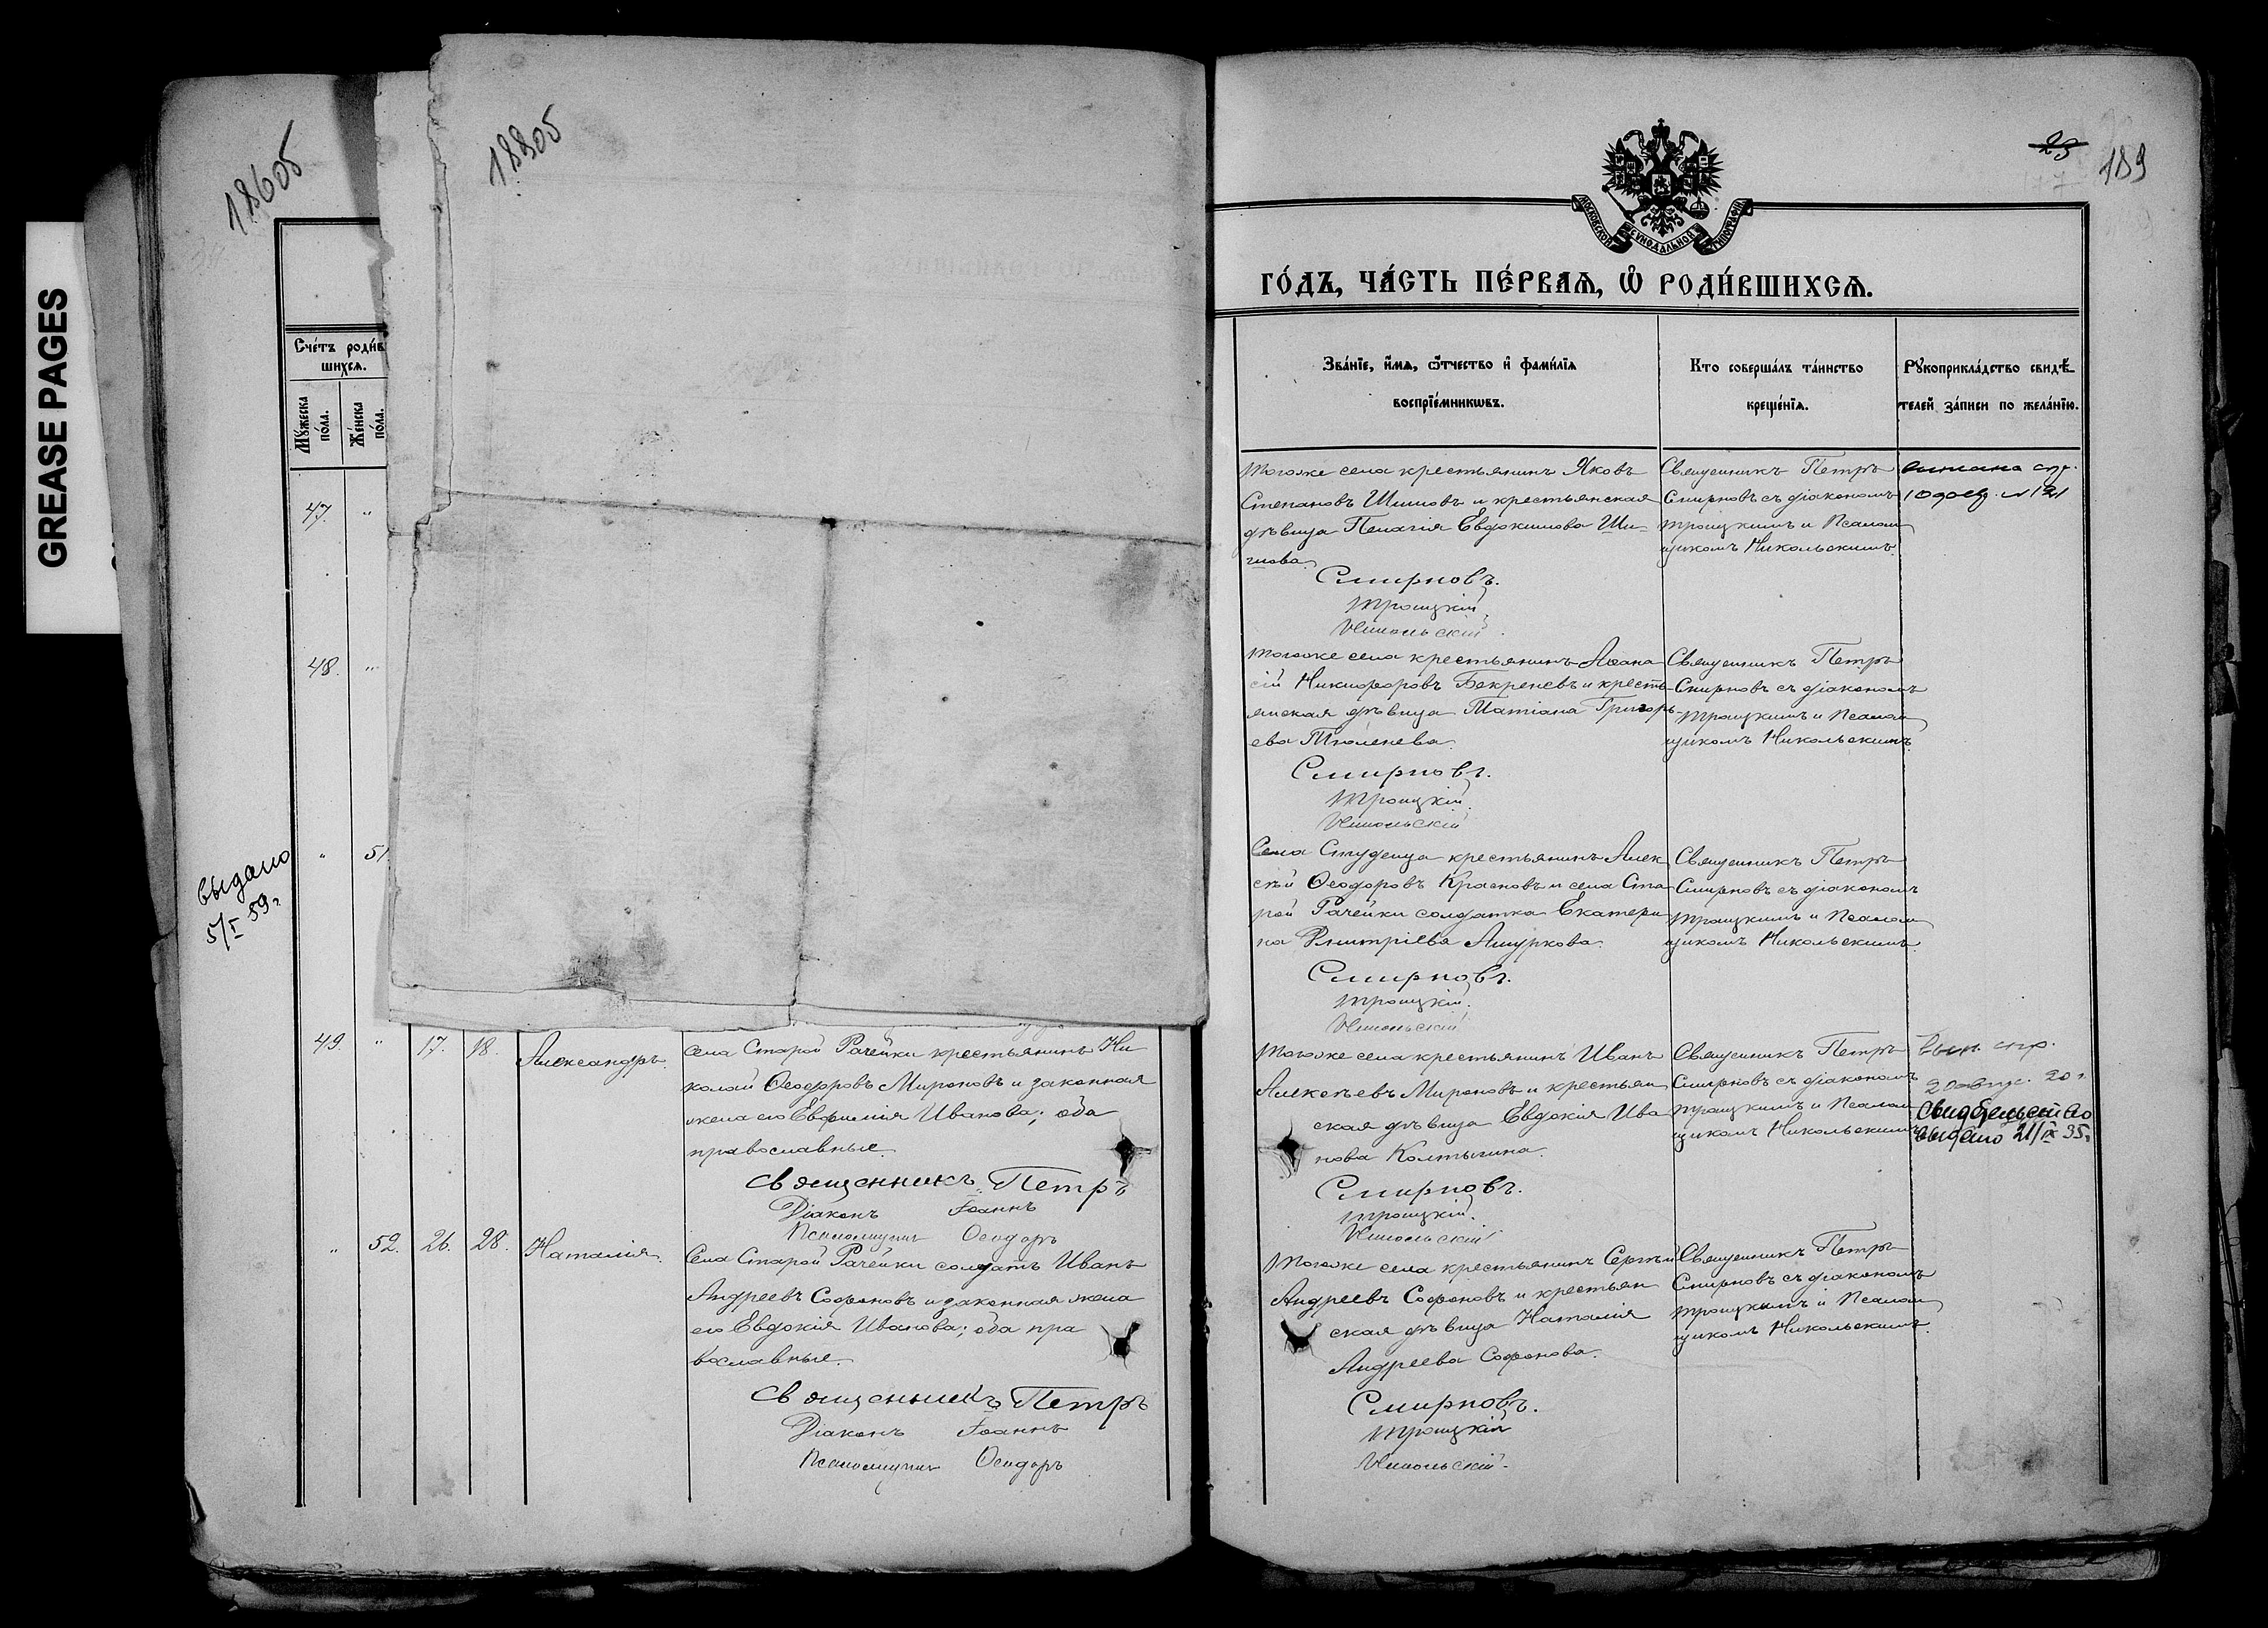 GREASE PAGES
18605
18805
Счётъ роди́в
шихся.
Мꙋжеска
по́ла.
Же́нска
по́ла.
47. "
48. "
выдано
5/I 59г
" 51
49. " 17. 18. Александръ.
Села Старой Рачейки крестьянинъ Ни
колай Ѳеодоровъ Мироновъ и законная
жена его Евфимія Иванова; оба
православные.
Священникъ Петръ
Діаконъ Іоаннъ
Псаломщикъ Ѳеодоръ
" 52. 26. 28. Наталія.
Села Старой Рачейки солдатъ Иванъ
Андреевъ Софоновъ и законная жена
его Евдокія Иванова; оба пра
вославные.
Священникъ Петръ
Діаконъ Іоаннъ
Псаломщикъ Ѳеодоръ
23
189
МОСКОВСКОЙ СѴНОДАЛЬНОЙ ТИПОГРАФІИ
ГО́ДЪ, ЧА́СТЬ ПЕ́РВАѦ, Ѡ҆ РОДИ́ВШИХСѦ.
Зва́нїе, и҆́мѧ, ѻ҆́тчество и҆ фами́лїѧ
воспрїе́мникѡвъ.
Кто соверша́лъ та́инство
креще́нїѧ.
Рꙋкоприкла́дство свидѣ́
телей за́писи по жела́нїю.
Тогоже села крестьянинъ Яковъ
Степановъ Шишовъ и крестьянская
дѣвица Пелагія Евдокимова Ши-
шова.
Смирновъ.
Троицкій.
Никольскій.
Священникъ Петръ
Смирновъ съ діакономъ
Троицкимъ и Псалом
щикомъ Никольскимъ.
Тогоже села крестьянинъ Аѳана
сій Никифоровъ Бекреневъ и кресть-
янская дѣвица Татіана Григорь-
ева Тюленева.
Смирновъ.
Троицкій.
Никольскій
Священникъ Петръ
Смирновъ съ діакономъ
Троицкимъ и Псалом
щикомъ Никольскимъ.
Села Студенца крестьянинъ Алек
сѣй Ѳеодоровъ Красновъ и села Ста
рой Рачейки солдатка Екатери
на Дмитріева Ашуркова.
Смирновъ.
Троицкій.
Никольскій
Священникъ Петръ
Смирновъ съ діакономъ
Троицкимъ и Псалом
щикомъ Никольскимъ.
Тогоже села крестьянинъ Иванъ
Алексѣевъ Мироновъ и крестьян
ская дѣвица Евдокія Ива
нова Колтыгина.
Смирновъ.
Троицкій.
Никольскій
Священникъ Петръ
Смирновъ съ діакономъ
Троицкимъ и Псалом
щикомъ Никольскимъ
выдано 21/IX 35г
Тогоже села крестьянинъ Сергѣй
Андреевъ Софоновъ и крестьян
ская дѣвица Наталія
Андреева Софонова.
Смирновъ.
Троицкій
Никольскій.
Священникъ Петръ
Смирновъ съ діакономъ
Троицкимъ и Псалом
щикомъ Никольскимъ.